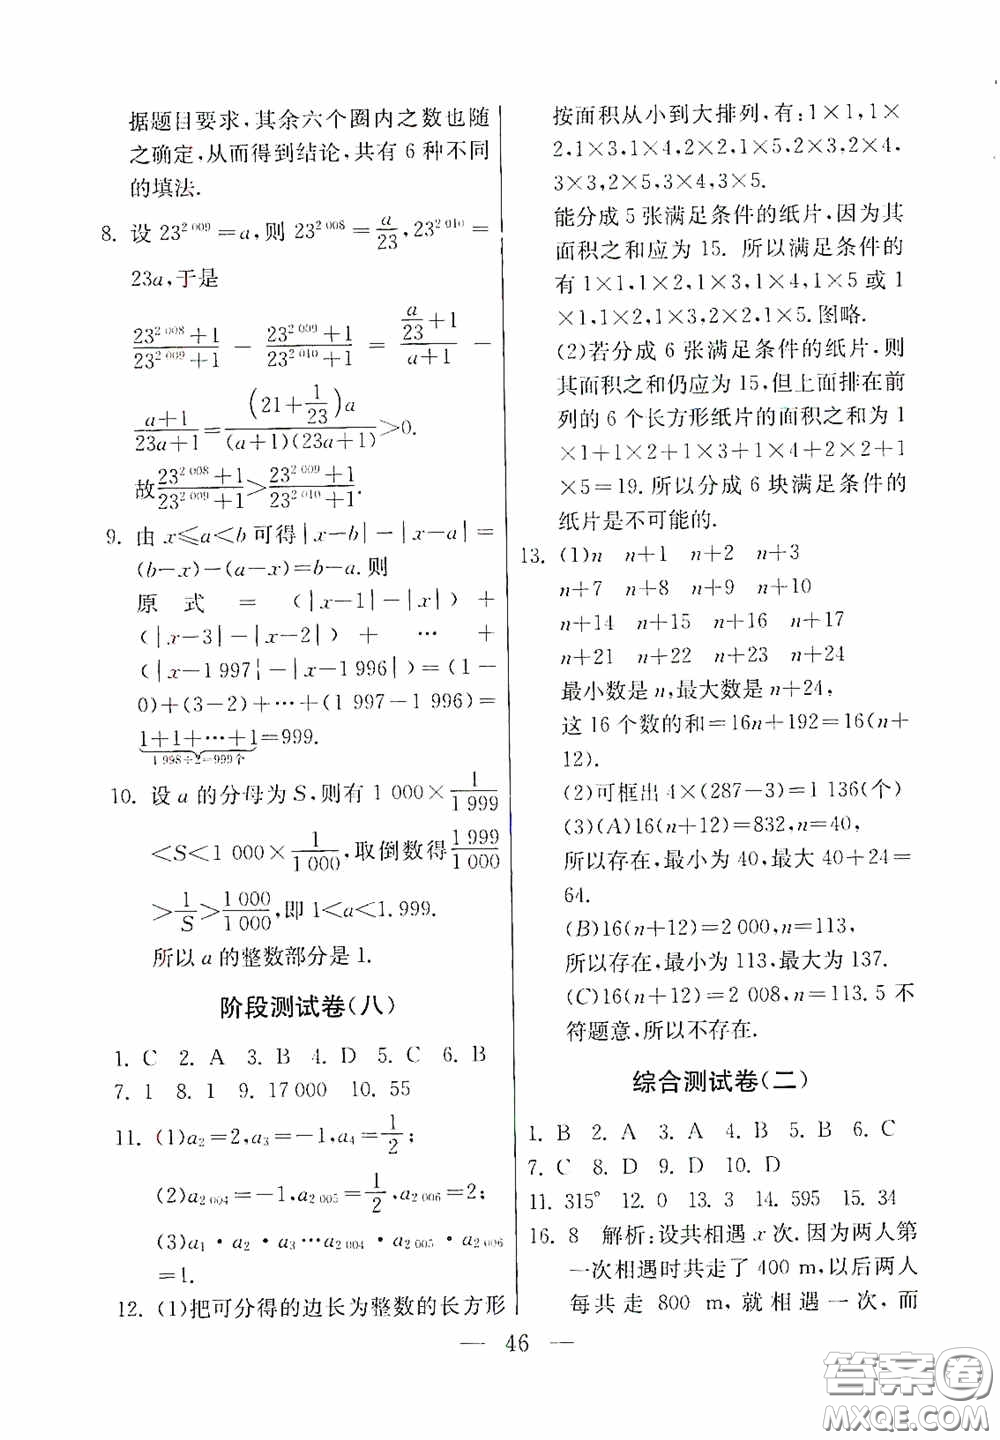 据题目要求,其余六个圈内之数也随
之确定,从而得到结论,共有 6 种不同
的填法.
8. 设 23^{2 009}=a,则 23^{2 008}=\frac{a}{23},23^{2 010}=
23a,于是
\frac{23^{2 008}+1}{23^{2 009}+1} - \frac{23^{2 009}+1}{23^{2 010}+1} = \frac{\frac{a}{23}+1}{a+1} -
\frac{a+1}{23a+1}=\frac{(21+\frac{1}{23})a}{(a+1)(23a+1)}>0.
故\frac{23^{2 008}+1}{23^{2 009}+1}>\frac{23^{2 009}+1}{23^{2 010}+1}.
9. 由 x≤a<b 可得|x-b|-|x-a|=
(b-x)-(a-x)=b-a.则
原 式 = (|x-1|-|x|) +
(|x-3|-|x-2|) + … +
(|x-1 997|-|x-1 996|)=(1-
0)+(3-2)+…+(1 997-1 996)=
1+1+…+1=999.
1 998÷2=999个
10. 设 a 的分母为 S,则有 1 000×\frac{1}{1 999}
<S<1 000×\frac{1}{1 000},取倒数得\frac{1 999}{1 000}
>\frac{1}{S}>\frac{1 000}{1 000},即 1<a<1.999.
所以 a 的整数部分是 1.
阶段测试卷(八)
1. C 2. A 3. B 4. D 5. C 6. B
7. 1 8. 1 9. 17 000 10. 55
11. (1)a₂=2,a₃=-1,a₄=\frac{1}{2};
(2)a_{2 004}=-1,a_{2 005}=\frac{1}{2},a_{2 006}=2;
(3)a₁·a₂·a₃…a_{2 004}·a_{2 005}·a_{2 006}
=1.
12. (1)把可分得的边长为整数的长方形
按面积从小到大排列,有:1×1,1×
2,1×3,1×4,2×2,1×5,2×3,2×4,
3×3,2×5,3×4,3×5.
能分成 5 张满足条件的纸片,因为其
面积之和应为 15. 所以满足条件的
有 1×1,1×2,1×3,1×4,1×5 或 1
×1,1×2,1×3,2×2,1×5.图略.
(2)若分成 6 张满足条件的纸片,则
其面积之和仍应为 15,但上面排在前
列的 6 个长方形纸片的面积之和为 1
×1+1×2+1×3+1×4+2×2+1
×5=19. 所以分成 6 块满足条件的
纸片是不可能的.
13. (1)n n+1 n+2 n+3
n+7 n+8 n+9 n+10
n+14 n+15 n+16 n+17
n+21 n+22 n+23 n+24
最小数是 n,最大数是 n+24,
这 16 个数的和=16n+192=16(n+
12).
(2)可框出 4×(287-3)=1 136(个)
(3)(A)16(n+12)=832,n=40,
所以存在,最小为 40,最大 40+24=
64.
(B)16(n+12)=2 000,n=113,
所以存在,最小为 113,最大为 137.
(C)16(n+12)=2 008,n=113.5 不
符题意,所以不存在.
综合测试卷(二)
1. B 2. A 3. A 4. B 5. B 6. C
7. C 8. D 9. D 10. D
11. 315° 12. 0 13. 3 14. 595 15. 34
16. 8 解析:设共相遇 x 次.因为两人第
一次相遇时共走了 400 m,以后两人
每共走 800 m,就相遇一次,而
— 46 —
答案卷
MXQE.COM